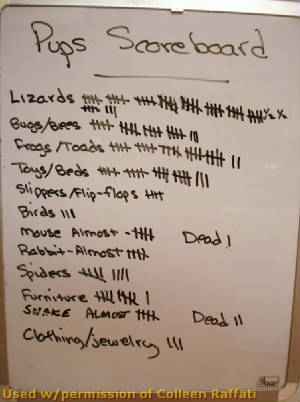 Pups Scoreboard
Lizards ½ ½
Bugs/Bees
Frogs/Toads
Toys/Beds
Slippers/Flip-flops
Birds |||
Mouse Almost - Dead |
Rabbit-Almost
Spiders
Furniture
SNAKE ALMOST Dead ||
Clothing/jewelry |||
Used w/permission of Colleen Raffati